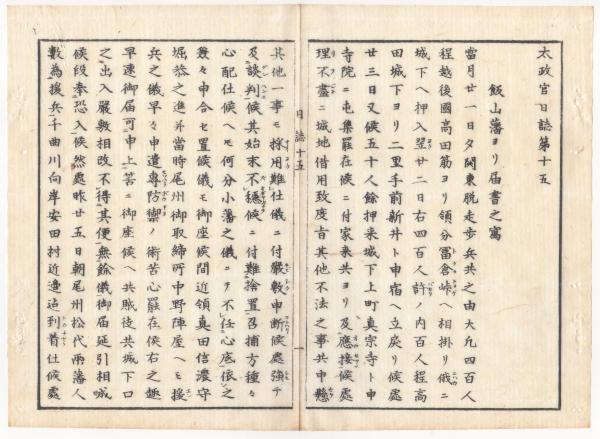 太政官日誌第十五
飯山藩ヨリ届書之寫
當月廿一日夕関東脱走歩兵共之由大凡四百人
程越後國高田筋ヨリ領分冨倉峠ヘ相掛リ俄ニ
城下ヘ押入翌廿二日右四百人許ノ内百人程高
田城下ヨリ二里手前新井ト申宿ヘ立戻リ候處
廿三日又候五十人餘押来城下上町真宗寺ト申
寺院ニ屯集罷在候ニ付家来共ヨリ及應接候處
理不盡ニ城地借用致度旨其他不法之事共申懸
日誌十五
一
其他一事モ採用難仕儀ニ付嚴敷申断候處強テ
及談判候其始末不穏候ニ付難捨置召捕方種々
心配仕候ヘモ何分小藩之儀ニテ不任心底依之
幾々申合セ置候儀モ御座候間近領真田信濃守
堀恭之進并當時尾州御取締所中野陣屋ヘモ援
兵之儀早々申遣專防禦ノ術苦心罷在候右之趣
早速御届可申上筈ニ御座候ヘ共賊徒共城下口
之出入嚴敷相改不得其便無餘儀御届延引相成
候段奉恐入候然處昨廿五日朝尾州松代両藩人
數為援兵千曲川向岸安田村近邊迠到着仕候處